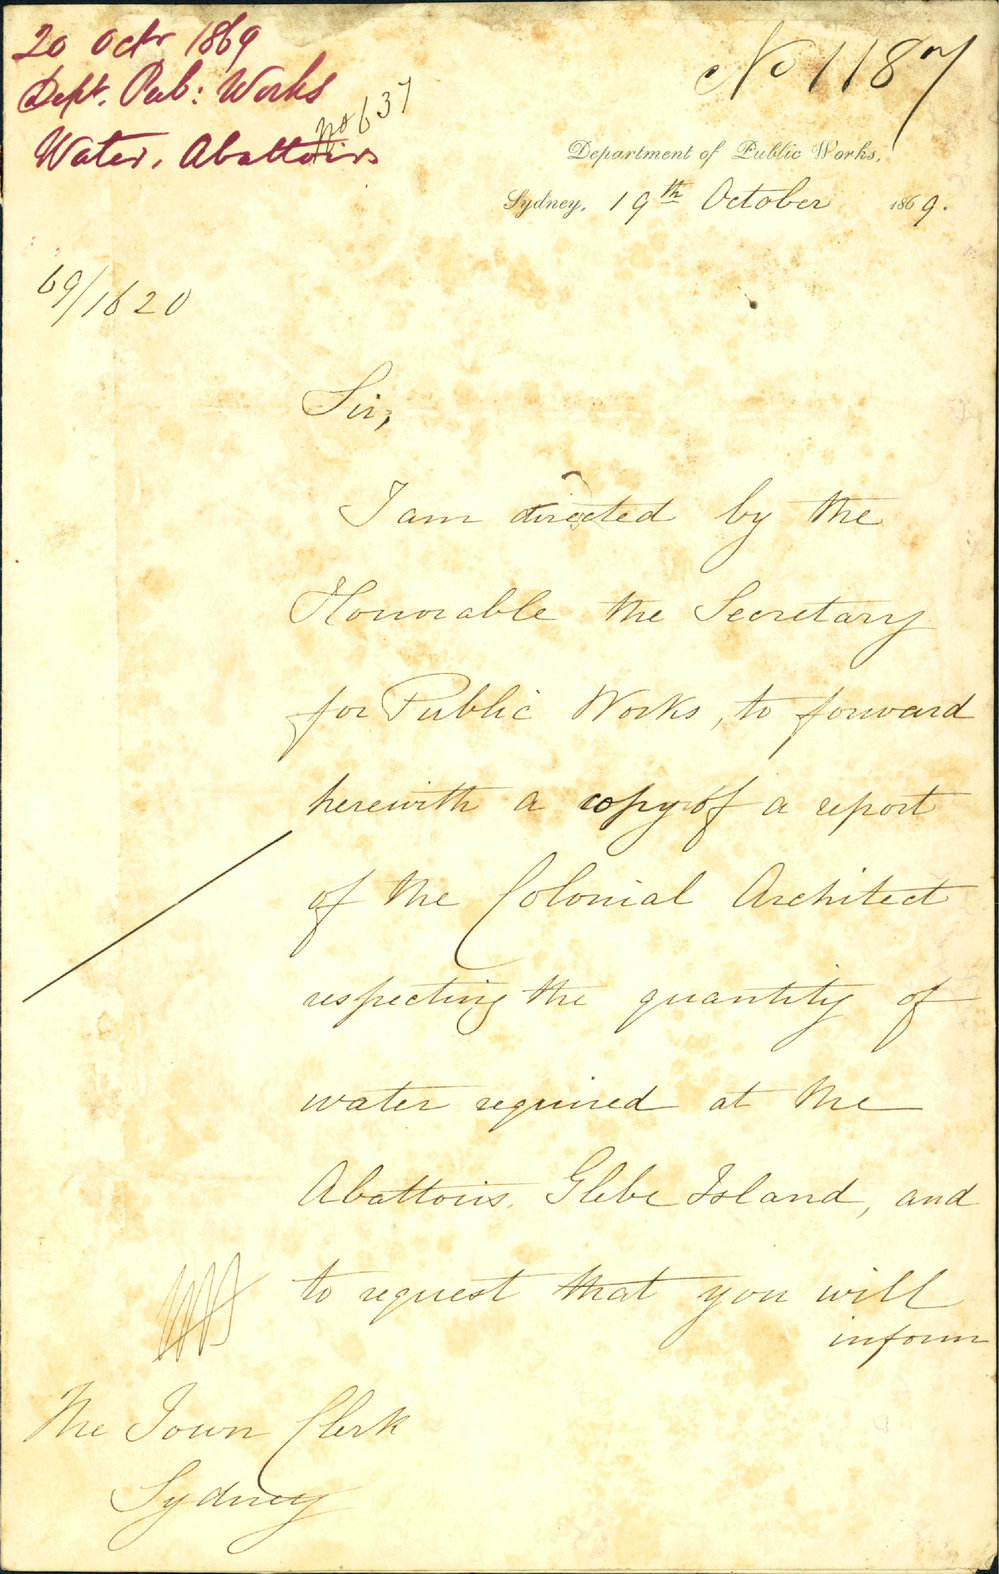 20 Octr 1869
Dept. Pub: Works
Water, Abattoirs
No 637
No 1187
Department of Public Works,
Sydney, 19th October 1869.
69/1620
Sir,
I am directed by the
Honorable the Secretary
for Public Works, to forward
herewith a copy of a report
of the Colonial Architect
respecting the quantity of
water required at the
Abattoirs, Glebe Island, and
to request that you will
inform
The Town Clerk
Sydney